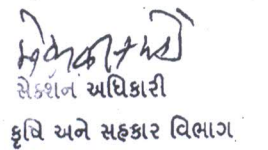 સેકશન અધિકારી
કૃષિ અને સહકાર વિભાગ